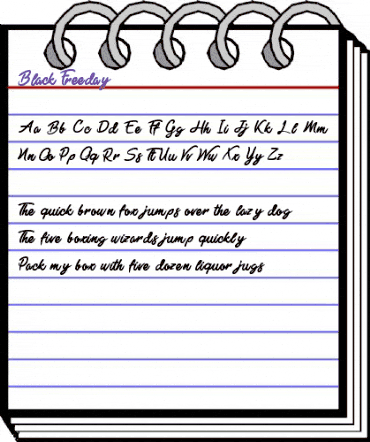 Black Freeday
Aa Bb Cc Dd Ee Ff Gg Hh Ii Jj Kk Ll Mm
Nn Oo Pp Qq Rr Ss Tt Uu Vv Ww Xx Yy Zz
The quick brown fox jumps over the lazy dog
The five boxing wizards jump quickly
Pack my box with five dozen liquor jugs